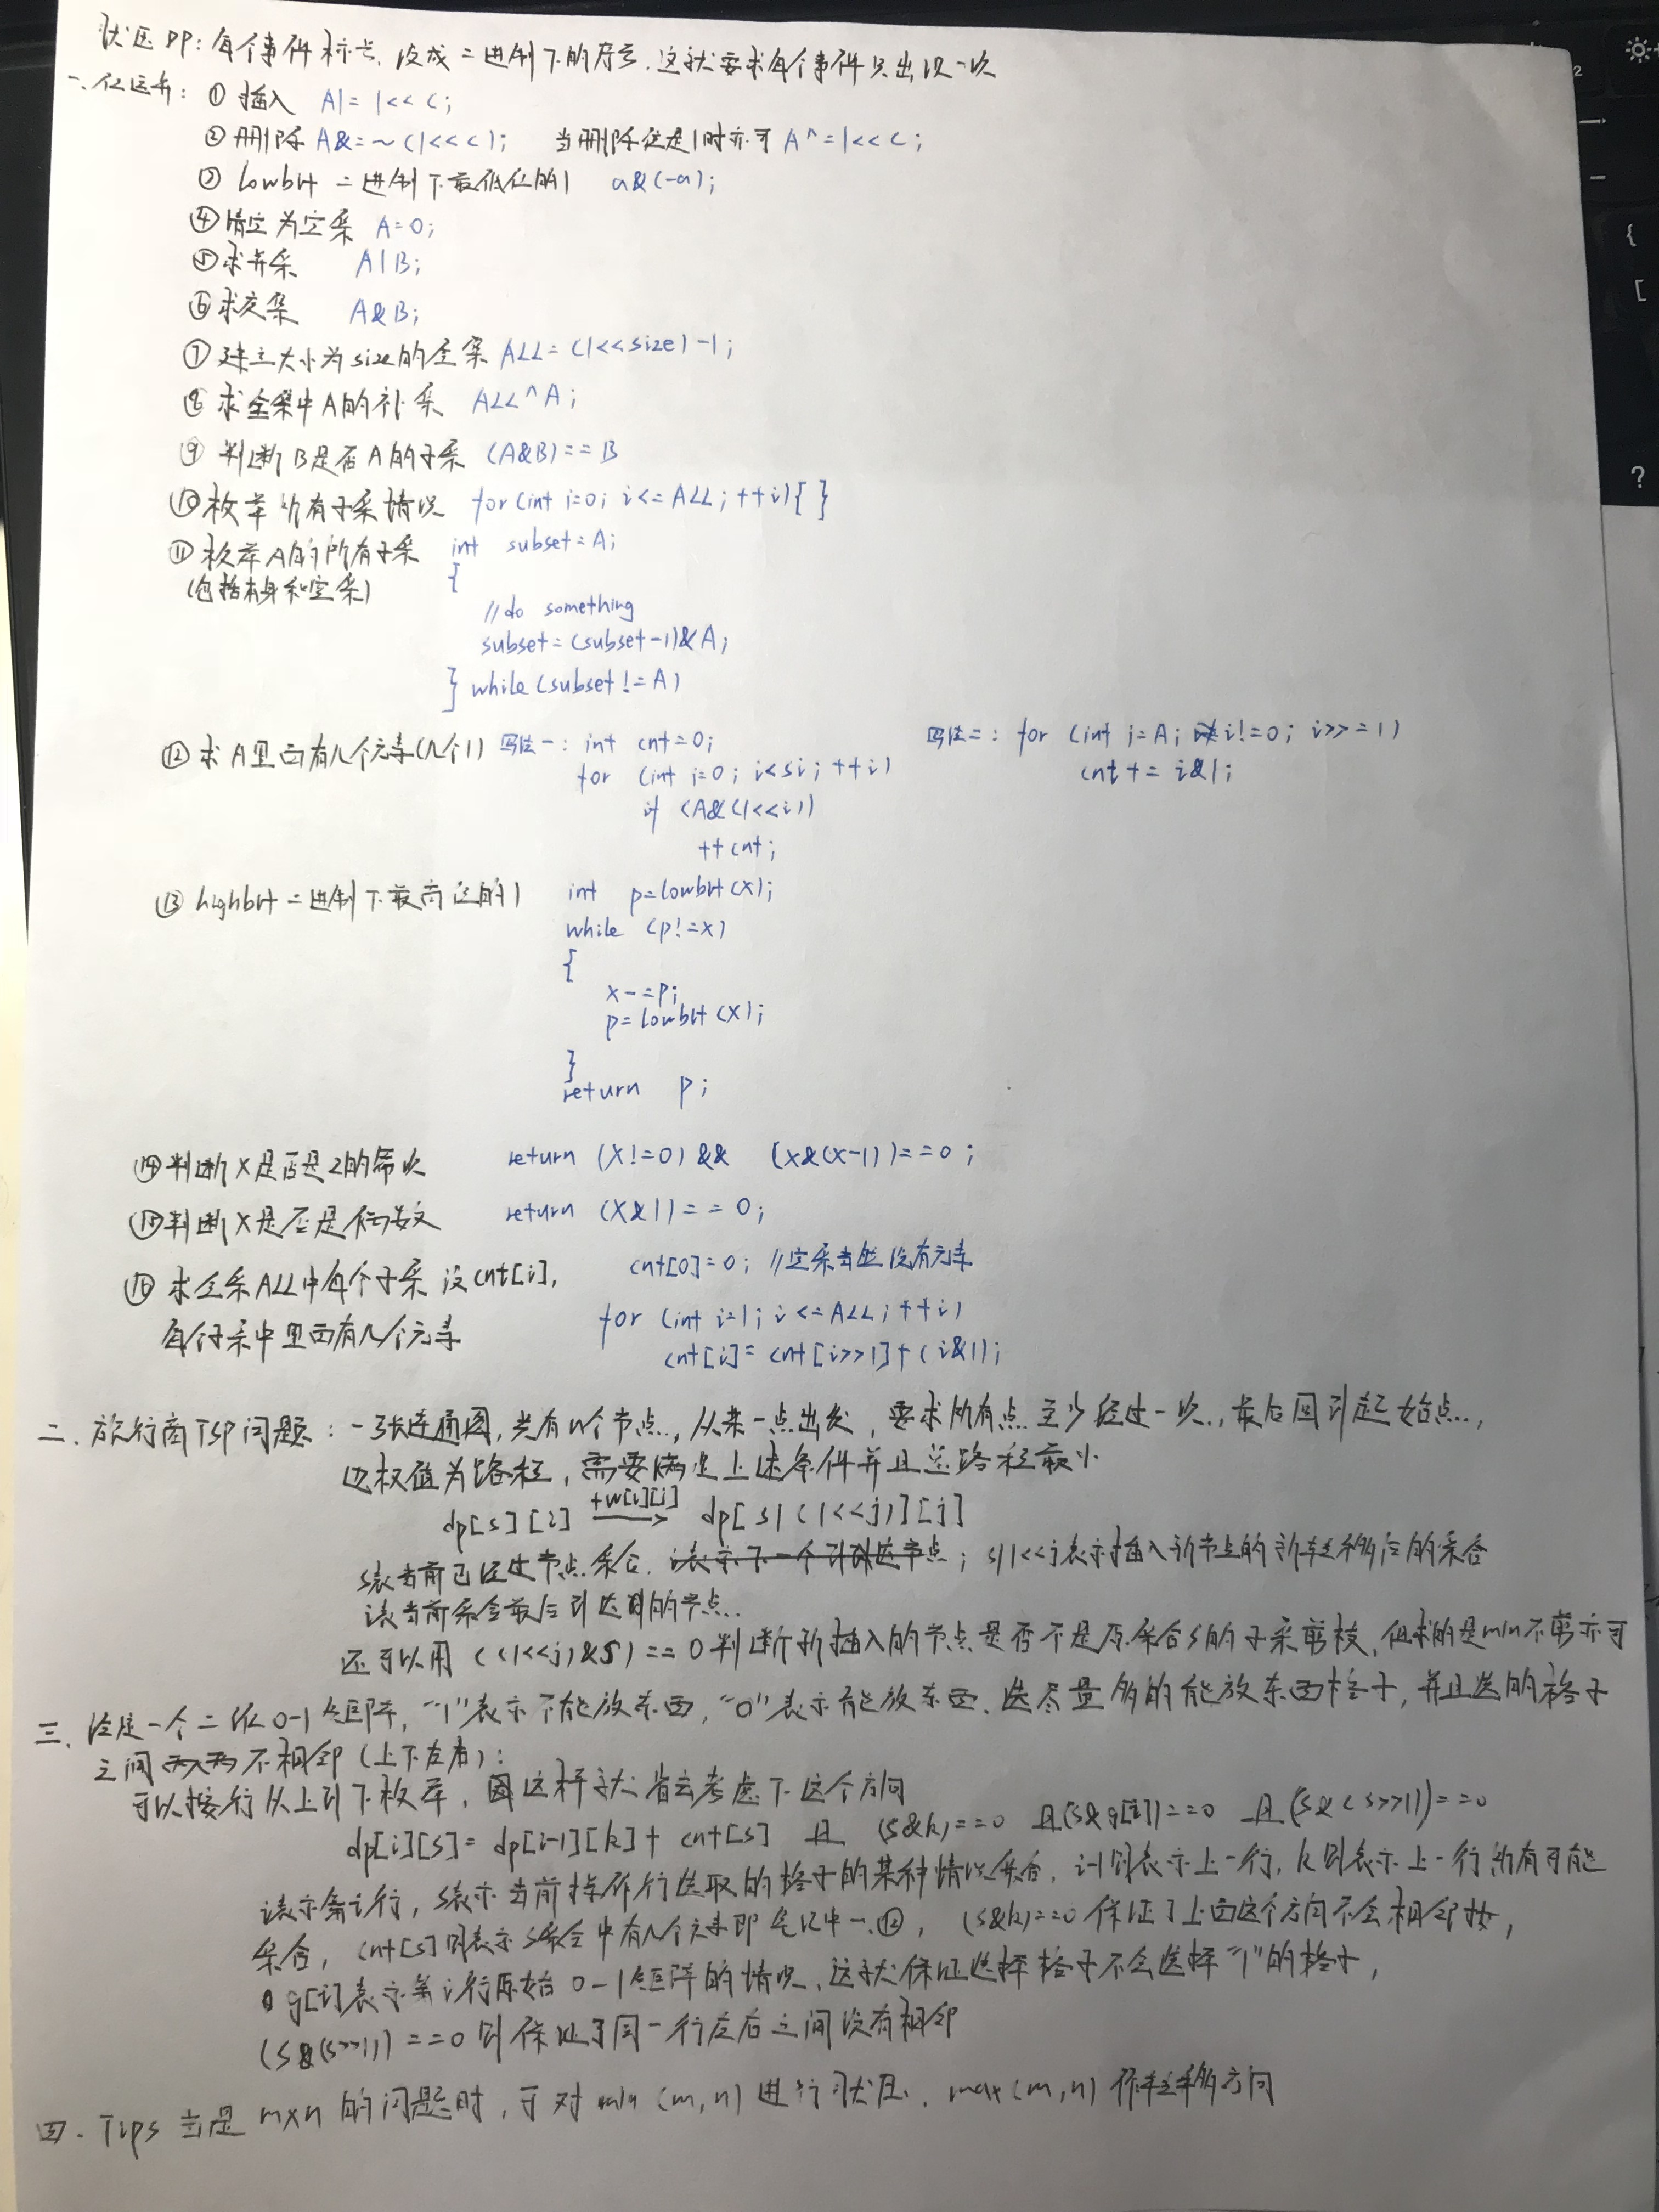 状压DP：每个事件标号，设成二进制下的序号，这就要求每个事件只出现一次
一、位运算：① 插入 A|=1<<C;
② 删除 A&=~(1<<C); 当删除位是1时亦可 A^=1<<C;
③ lowbit 二进制下最低位的1 a&(-a);
④ 清空为空集 A=0;
⑤ 求并集 A|B;
⑥ 求交集 A&B;
⑦ 建立大小为size的全集 ALL=(1<<size)-1;
⑧ 求全集中A的补集 ALL^A;
⑨ 判断B是否A的子集 (A&B)==B
⑩ 枚举所有子集情况 for(int i=0; i<=ALL; ++i){ }
⑪ 枚举A的所有子集 int subset=A;
(包括本身和空集) {
//do something
subset=(subset-1)&A;
} while(subset!=A)
⑫ 求A里面有几个元素(几个1) 写法一：int cnt=0; 写法二：for (int i=A; i!=0; i>>=1)
for (int i=0; i<si; ++i) cnt+= i&1;
if (A&(1<<i))
++cnt;
⑬ highbit 二进制下最高位的1 int p=lowbit(x);
while (p!=x)
{
x-=p;
p=lowbit(x);
}
return p;
⑭ 判断X是否是2的幂次 return (X!=0) && (x&(x-1))==0;
⑮ 判断X是否是偶数 return (X&1)==0;
⑯ 求全集ALL中每个子集 设cnt[i], cnt[0]=0; //空集当然没有元素
每个子集中里面有几个元素 for (int i=1; i<=ALL; ++i)
cnt[i]= cnt[i>>1]+(i&1);
二、旅行商TSP问题：一张连通图，共有n个节点，从某一点出发，要求所有点至少经过一次，最后回到起始点，
边权值为路程，需要满足上述条件并且总路程最小
dp[s][i] +w[i][j] → dp[s|(1<<j)][j]
s表当前已经过节点集合. i表示下一个到达节点；s|1<<j表示插入新节点的新转移后的集合
i表当前集合最后到达的节点
还可以用 ((1<<j)&S)==0 判断新插入的节点是否不是原集合S的子集剪枝，但求的是min不剪亦可
三、给定一个二维0-1矩阵，"1"表示不能放东西，"0"表示能放东西，选尽量多的能放东西格子，并且选的格子
之间两两不相邻(上下左右)：
可以按行从上到下枚举，因这样就省去考虑下这个方向
dp[i][s]= dp[i-1][k]+ cnt[s] 且 (s&k)==0 且(s&g[i])==0 且(s&(s>>1))==0
i表示第i行，s表示当前操作行选取的格子的某种情况集合，i-1则表示上一行，k则表示上一行所有可能
集合，cnt[s]则表示s集合中有几个元素即笔记中一.⑫，(s&k)==0保证了上面这个方向不会相邻放，
g[i]表示第i行原始0-1矩阵的情况，这就保证选择格子不会选择"1"的格子，
(s&(s>>1))==0则保证了同一行左右之间没有相邻
四、Tips 当是m×n的问题时，可对min(m,n)进行状压，max(m,n)作转移方向